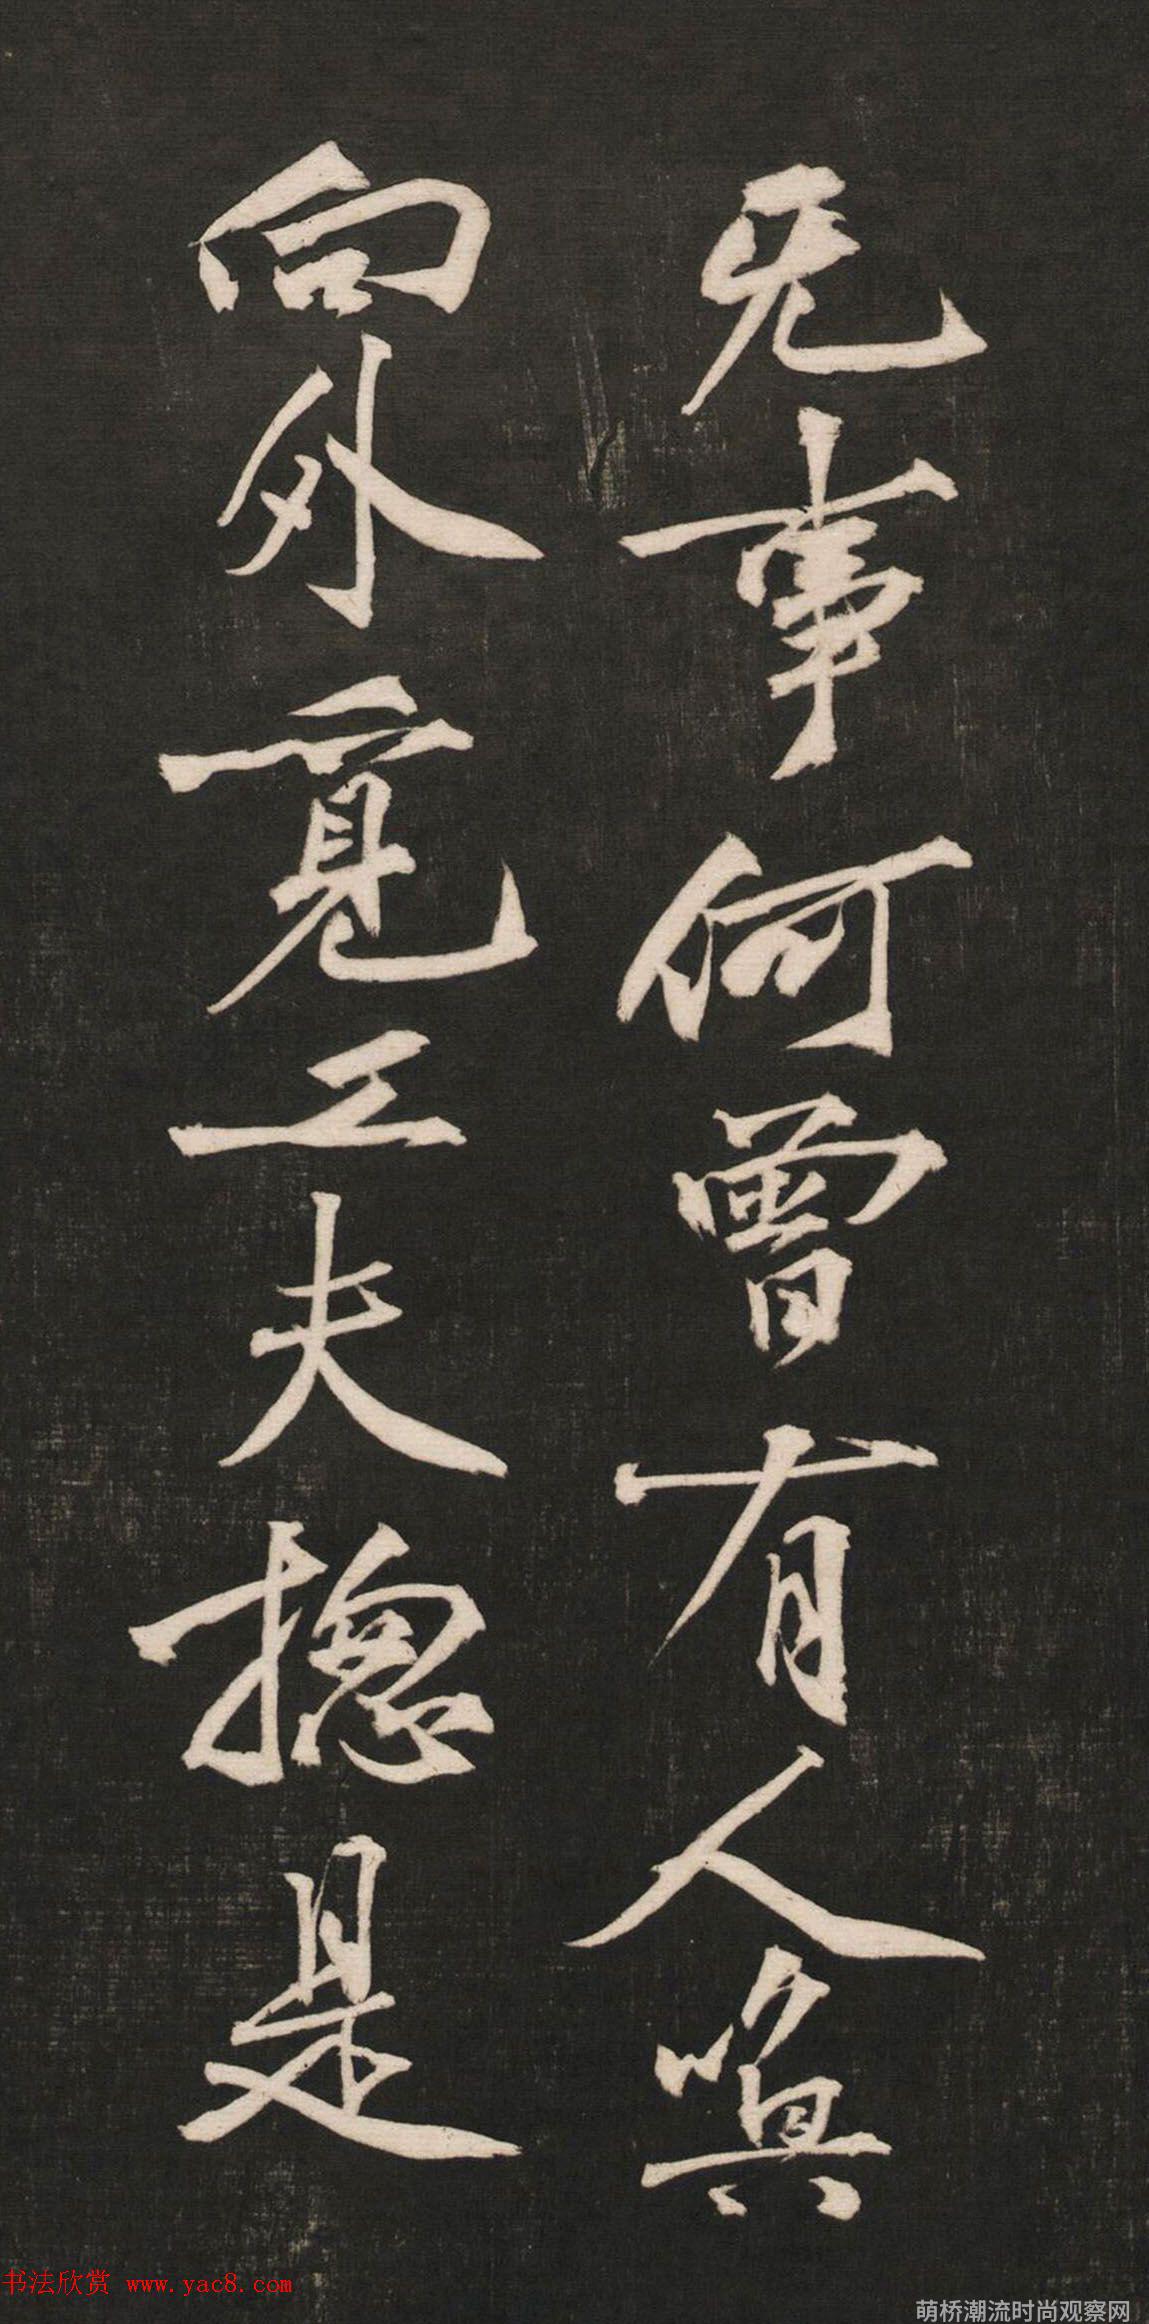 无事何曾有人唤
向外覓工夫揔是
书法欣赏 www.yac8.com
萌桥潮流时尚观察网